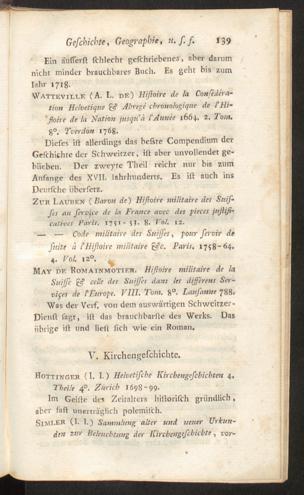 Geschichte, Geographie, u. s. f. 139
Ein äusserst schlecht geschriebenes, aber darum
nicht minder brauchbares Buch. Es geht bis zum
Jahr 1718.
WATTEVILLE (A. L. DE) Histoire de la Conféderation
Helvetique & Abregé chronologique de l'Histoire
de la Nation jusqu'à l'Année 1664. 2. Tom.
8°. Yverdün 1768.
Dieses ist allerdings das beste Compendium der
Geschichte der Schweitzer, ist aber unvollendet geblieben.
Der zweyte Theil reicht nur bis zum
Anfange des XVII. Jahrhunderts. Es ist auch ins
Deutsche übersetz.
ZUR LAUBEN (Baron de) Histoire militaire des Suisses
au service de la France avec des pieces justificatives
Paris. 1751-51. 8. Vol. 12.
— — Code militaire des Suisses, pour servir de
suite à l'Histoire militaire &c. Paris. 1758-64.
4. Vol. 12°.
MAY DE ROMAINMOTIER. Histoire militaire de la
Suisse & celle des Suisses dans les différens Services
de l'Europe. VIII. Tom. 8°. Lausanne 788.
Was der Verf. von dem auswärtigen Schweitzer-
Dienst sagt, ist das brauchbarste des Werks. Das
übrige ist und liest sich wie ein Roman.
V. Kirchengeschichte.
HOTTINGER (I. I.) Helvetische Kirchengeschichten 4.
Theile 4°. Zürich 1698-99.
Im Geiste des Zeitalters historisch gründlich,
aber fast unerträglich polemisch.
SIMLER (I. I.) Sammlung alter und neuer Urkunden
zur Beleuchtung der Kirchengeschichte, vor-